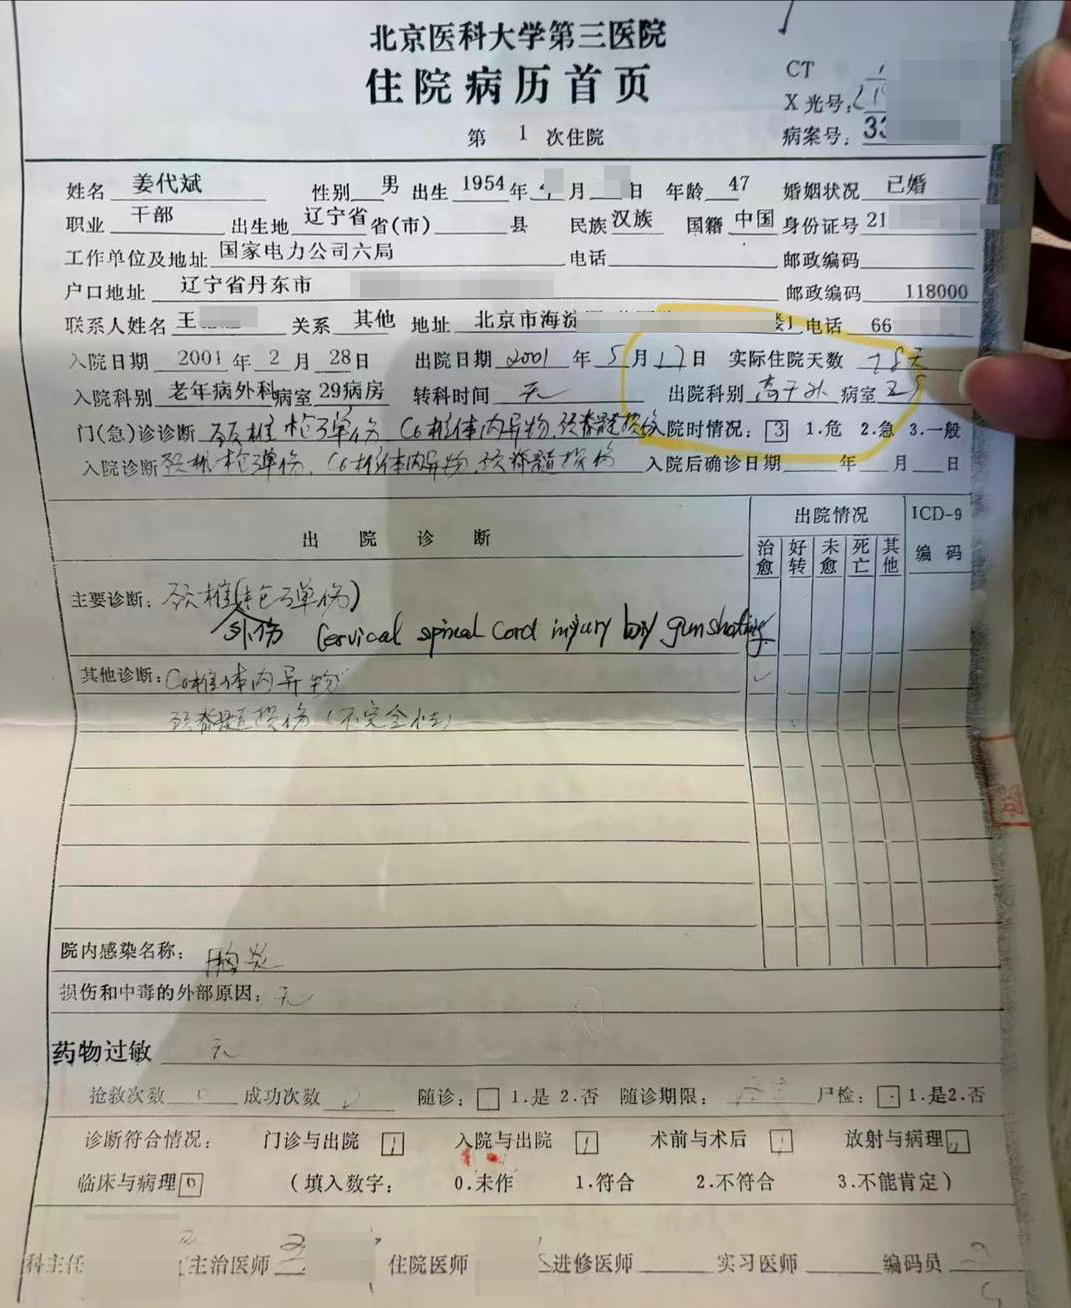 北京医科大学第三医院
住院病历首页
第 1 次住院
CT
X光号:
病案号: 33
姓名 姜代斌 性别 男 出生 1954 年 月 日 年龄 47 婚姻状况 已婚
职业 干部 出生地 辽宁省 省(市) 县 民族 汉族 国籍 中国 身份证号 21
工作单位及地址 国家电力公司六局 电话 邮政编码
户口地址 辽宁省丹东市 邮政编码 118000
联系人姓名 王 关系 其他 地址 北京市海淀 楼 电话 66
入院日期 2001 年 2 月 28 日 出院日期 2001 年 5 月 17 日 实际住院天数 78天
入院科别 老年病外科 病室 29病房 转科时间 无 出院科别 高干外 病室
门(急)诊诊断 颈椎枪弹伤、C6椎体内异物、颈脊髓损伤 入院时情况: 3 1.危 2.急 3.一般
入院诊断 颈椎枪弹伤、C6椎体内异物、颈脊髓损伤 入院后确诊日期 年 月 日
出院诊断 出院情况 ICD-9
治愈 好转 未愈 死亡 其他 编码
主要诊断: 颈椎(枪弹伤)
外伤 Cervical spinal cord injury by gunshoting
其他诊断: C6椎体内异物 ✓
颈脊髓损伤(不完全性)
院内感染名称: 胸炎
损伤和中毒的外部原因: 无
药物过敏 无
抢救次数 0 成功次数 0 随诊: □ 1.是 2.否 随诊期限: 尸检: 1.是2.否
诊断符合情况: 门诊与出院 1 入院与出院 1 术前与术后 1 放射与病理 0
临床与病理 0 (填入数字: 0.未作 1.符合 2.不符合 3.不能肯定)
科主任 主治医师 住院医师 进修医师 实习医师 编码员